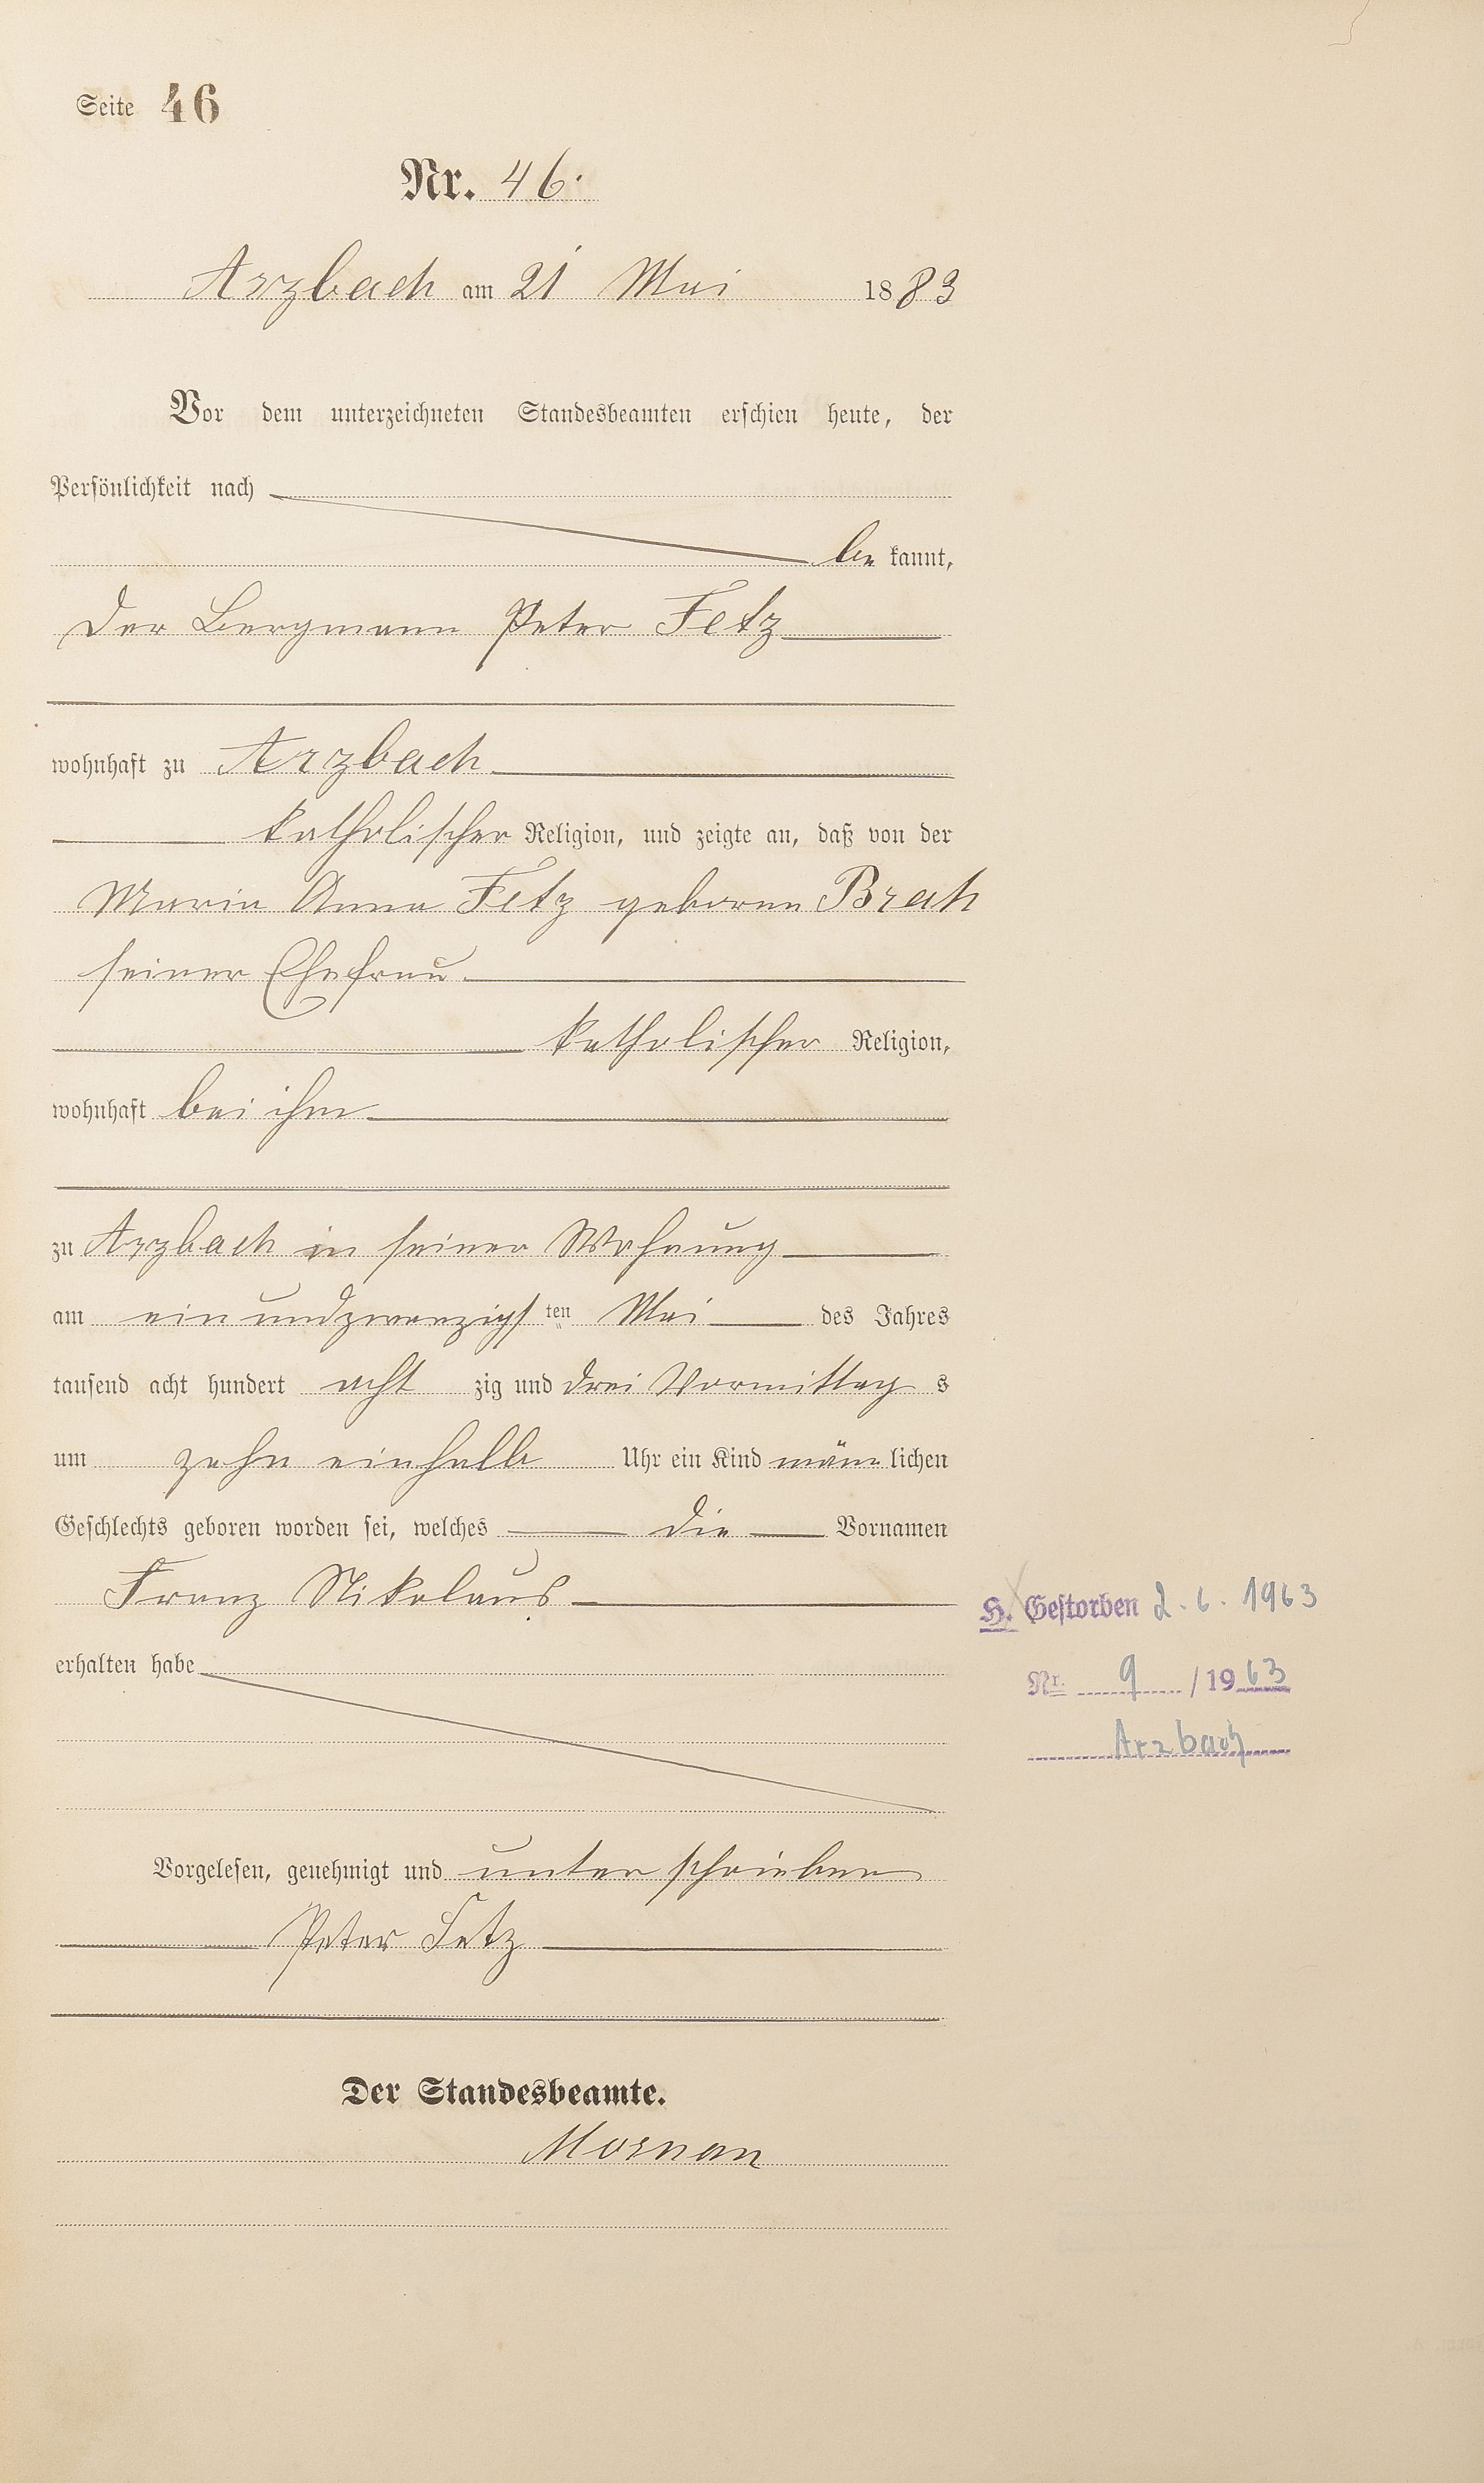 Seite 46
Nr. 46.
Arzbach am 21 Mai 1883
Vor dem unterzeichneten Standesbeamten erschien heute, der
Persönlichkeit nach
be kannt,
der Bergmann Peter Fetz
wohnhaft zu Arzbach
katholischer Religion, und zeigte an, daß von der
Maria Anna Fetz geborne Brah
seiner Ehefrau
katholischer Religion,
wohnhaft bei ihm
zu Arzbach in seiner Wohnung
am ein undzwanzigsten Mai des Jahres
tausend acht hundert acht zig und drei Vormittag s
um zehn einhalb Uhr ein Kind männlichen
Geschlechts geboren worden sei, welches die Vornamen
Franz Nikolaus
H. Gestorben 2. 6. 1963
erhalten habe
Nr. 9 / 1963
Arzbach
Vorgelesen, genehmigt und unterschrieben
Peter Fetz
Der Standesbeamte.